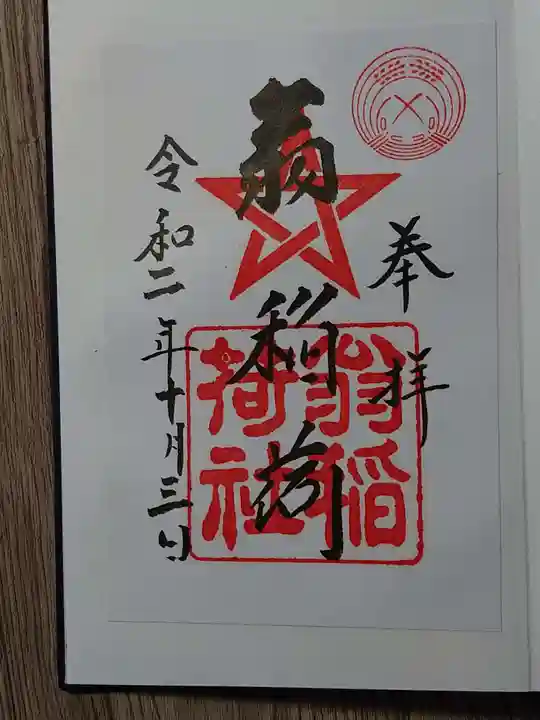 奉拝
翁稲荷
翁稲荷社
令和二年十月三日